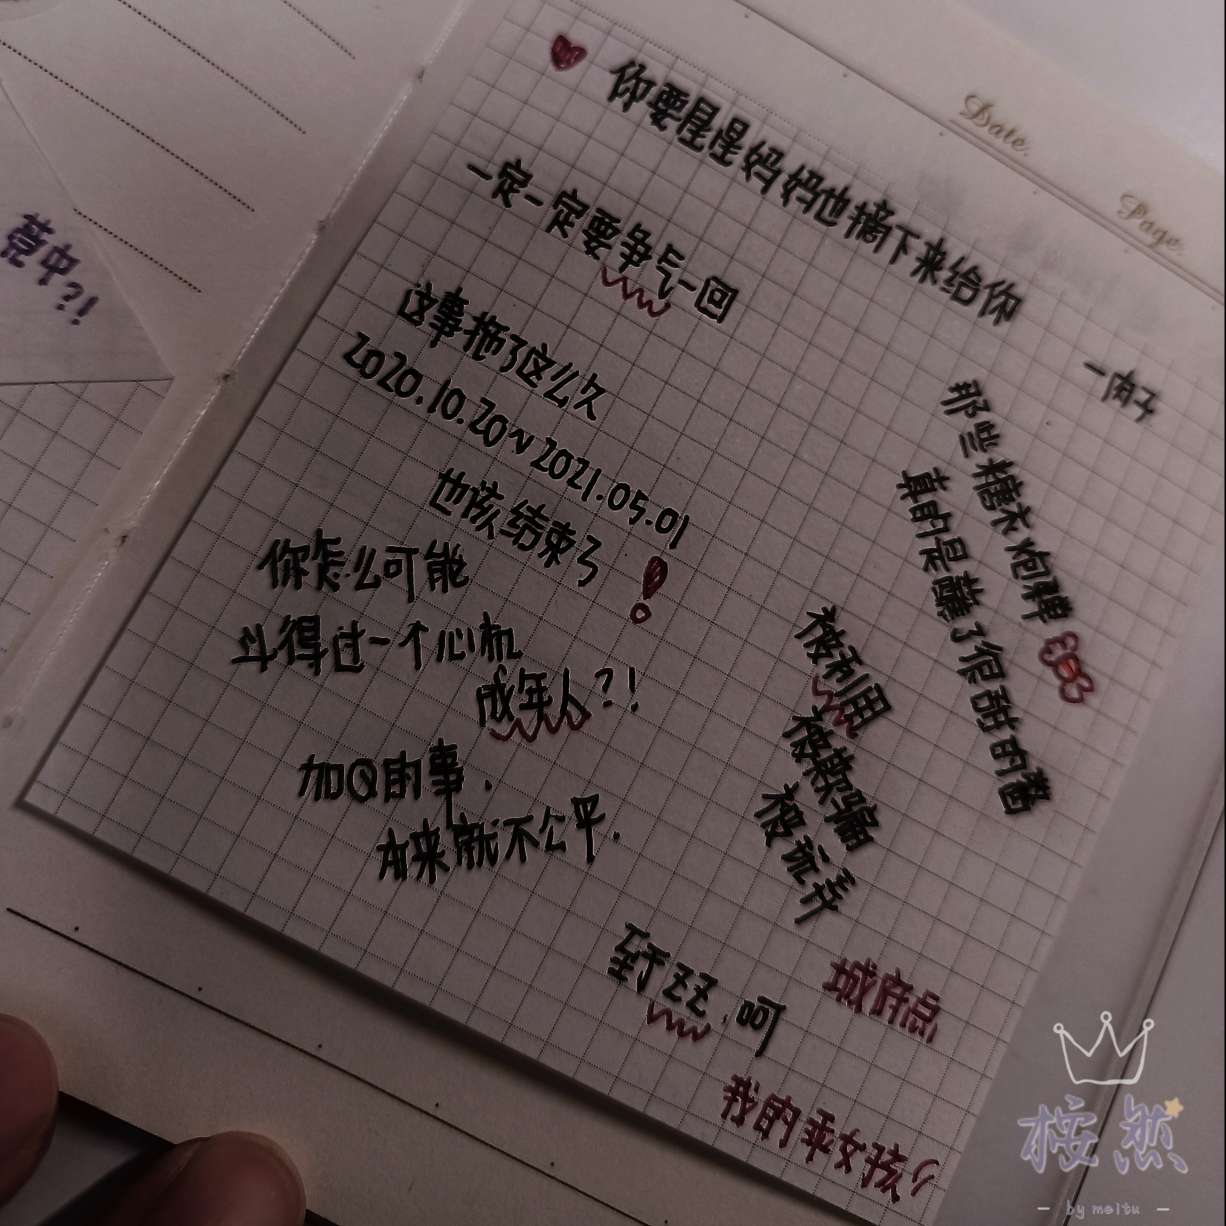 Date.
Page.
你要星星妈妈也摘下来给你
一定一定要争气一回
这事拖了这么久
2020.10.20~2021.05.01
也该结束了!
你怎么可能
斗得过一个心机
成年人?!
加Q的事.
本来就不公平.
至于ZZ.呵
那些糖衣炮弹
真的是藏了很甜的
被利用
被欺骗
被玩弄
城府点
我的乖女孩
中?!
桉然
- by meitu -